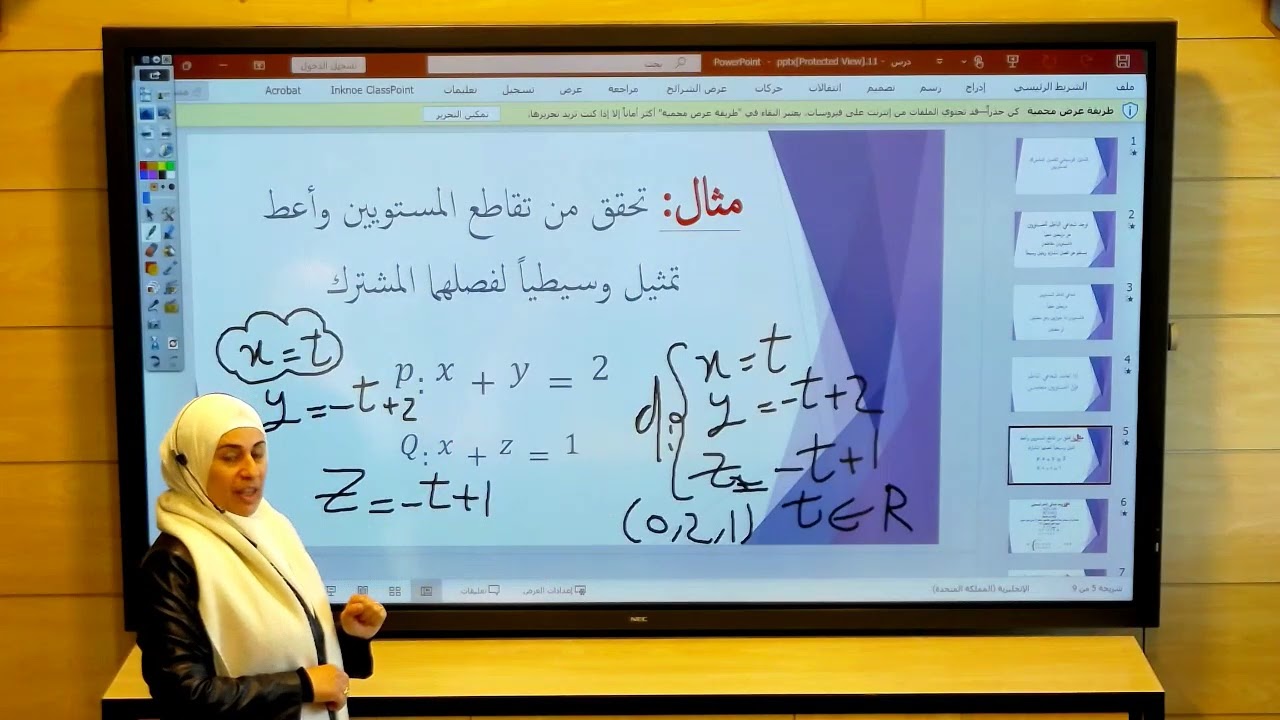 درس 11.pptx[Protected View] - PowerPoint
بحث
تسجيل الدخول
ملف الشريط الرئيسي إدراج رسم تصميم انتقالات حركات عرض الشرائح مراجعة عرض تسجيل تعليمات Inknoe ClassPoint Acrobat
طريقة عرض محمية كن حذراً—قد تحتوي الملفات من إنترنت على فيروسات. يعتبر البقاء في "طريقة عرض محمية" أكثر أماناً إلا إذا كنت تريد تحريرها. تمكين التحرير
مثال: تحقق من تقاطع المستويين وأعط
تمثيل وسيطياً لفصلهما المشترك
x=t
p: x + y = 2
y=-t+2
Q: x + z = 1
z=-t+1
d: x=t
y=-t+2
z=-t+1
(0,2,1) t∈R
1
2
3
4
5
6
7
شريحة 5 من 9
الإنجليزية (المملكة المتحدة)
إعدادات العرض
تعليقات
NEC